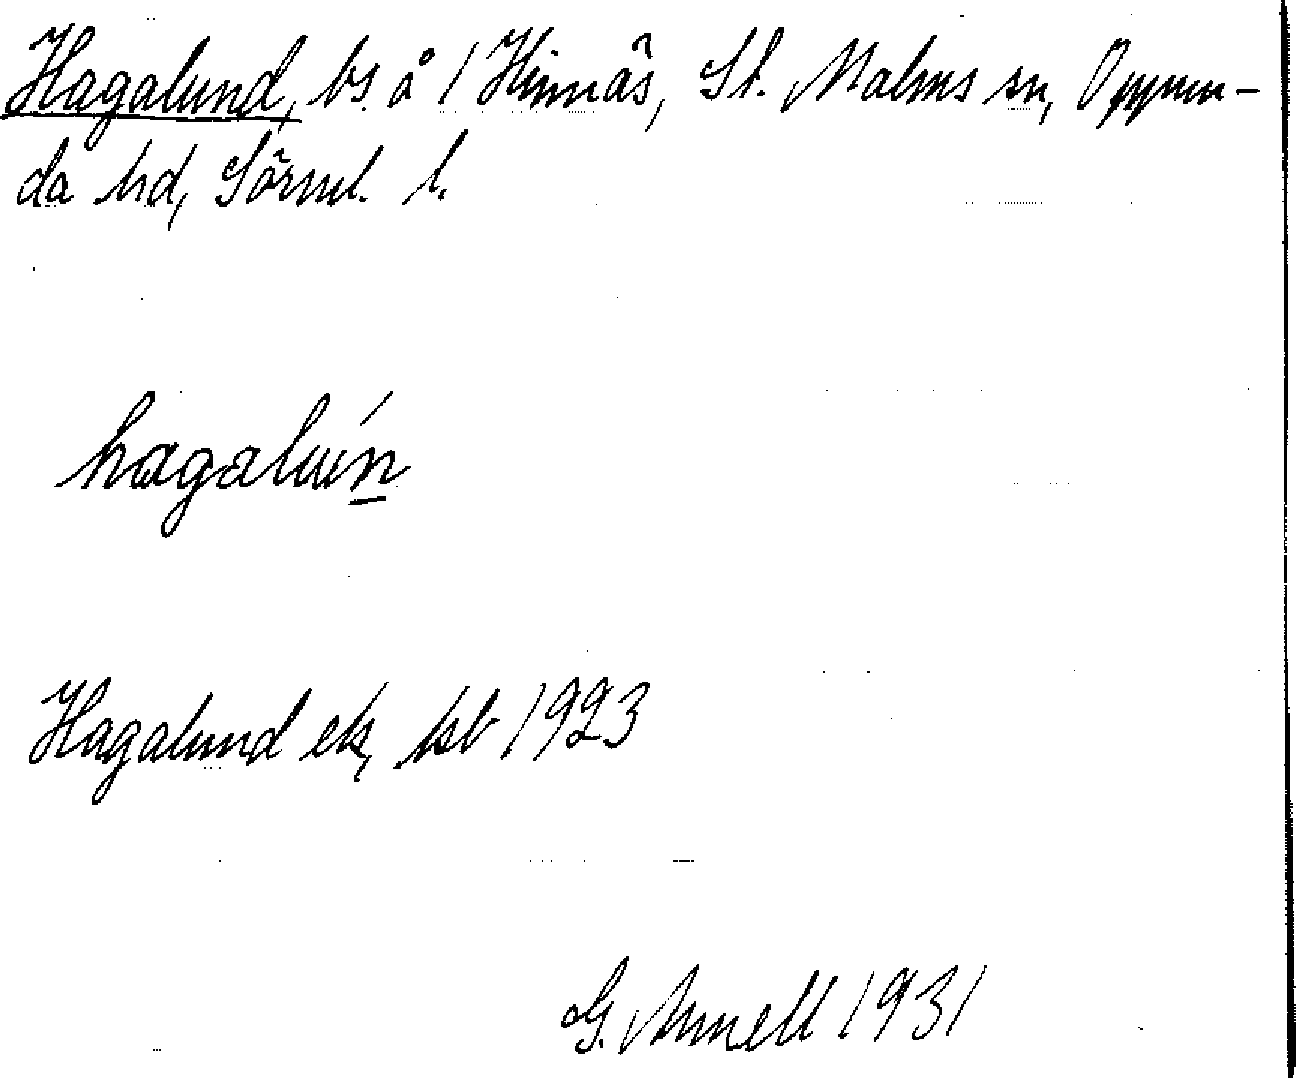 Hagalund, bs. å 1 Hinnäs, St. Malms sn, Oppun-
da hd, Sörml. l.
hagalun
Hagalund ek, ksb 1923
G. Arnell 1931